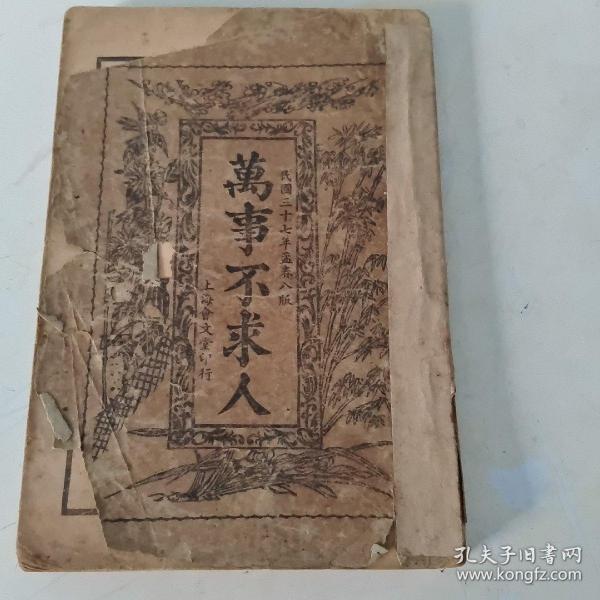 民國三十七年孟春八版
萬事不求人
上海會文堂印行
孔夫子旧書网
www.kongfz.com